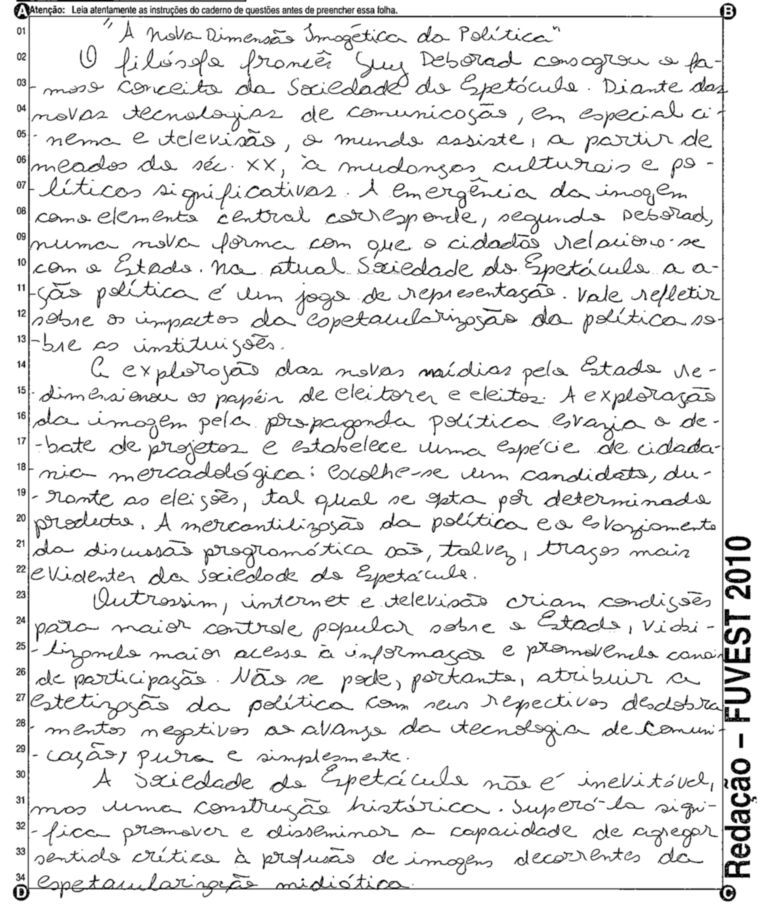 A Atenção: Leia atentamente as instruções do caderno de questões antes de preencher essa folha. B
01 "A Nova Dimensão Imagética da Política"
02 O filósofo francês Guy Deborad consagrou o fa-
03 - moso conceito da Sociedade do Espetáculo. Diante das
04 novas tecnologias de comunicação, em especial ci-
05 - nema e televisão, o mundo assiste, a partir de
06 meados do séc. XX, à mudanças culturais e po-
07 - líticas significativas. A emergência da imagem
08 como elemento central corresponde, segundo Deborad,
09 numa nova forma com que o cidadão relaciona-se
10 com o Estado. Na atual Sociedade do Espetáculo a a-
11 - ção política é um jogo de representação. Vale refletir
12 sobre os impactos da espetacularização da política so-
13 - bre as instituições.
14 A exploração das novas mídias pelo Estado re-
15 - dimensionou os papéis de eleitores e eleitos. A exploração
16 da imagem pela propaganda política esvazia o de-
17 - bate de projetos e estabelece uma espécie de cidada-
18 nia mercadológica: escolhe-se um candidato, du-
19 - rante as eleições, tal qual se opta por determinado
20 produto. A mercantilização da política e o esvaziamento
21 da discussão programática são, talvez, traços mais
22 evidentes da Sociedade do Espetáculo.
23 Outrossim, internet e televisão criam condições
24 para maior controle popular sobre o Estado, viabi-
25 - lizando maior acesso à informação e promovendo canais
26 de participação. Não se pode, portanto, atribuir a
27 estetização da política com seus respectivos desdobra
28 - mentos negativos ao avanço da tecnologia de comuni-
29 - cação, pura e simplesmente.
30 A Sociedade do Espetáculo não é inevitável,
31 mas uma construção histórica. Superá-la signi-
32 - fica promover e disseminar a capacidade de agregar
33 sentido crítico à profusão de imagens decorrentes da
34 espetacularização midiática.
D C
Redação – FUVEST 2010